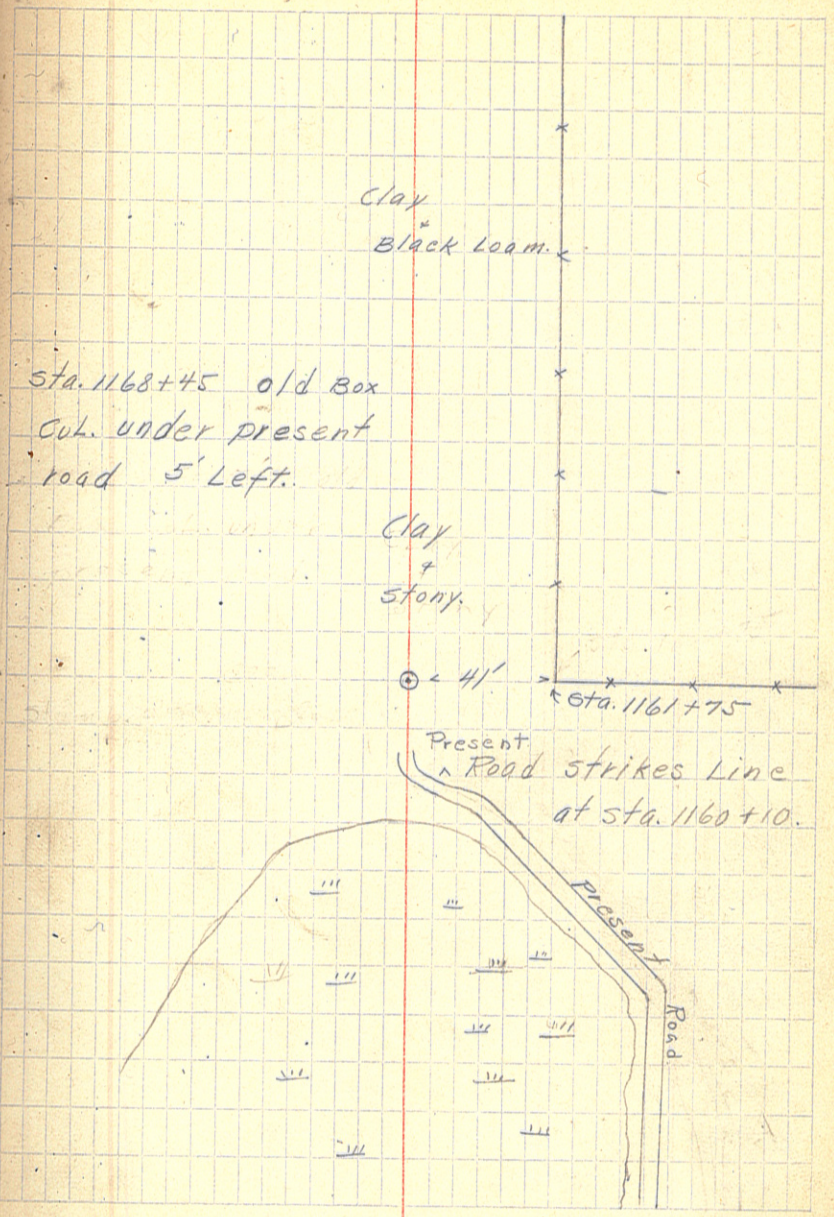 Clay
+
Black Loam.
Sta. 1168+45 old Box
Cul. under present
road 5' Left.
Clay
+
Stony.
41'
Sta. 1161+75
Present
^ Road strikes Line
at sta. 1160+10.
present
Road